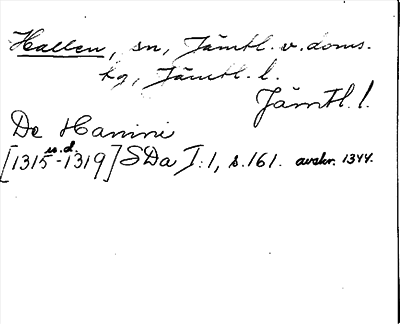 Hallen, sn, Jämtl. v. doms.
kg, Jämtl. l.
Jämtl. l.
De Hanini
u.d.
[1315-1319] SDa I:1, s.161. avskr. 1344.